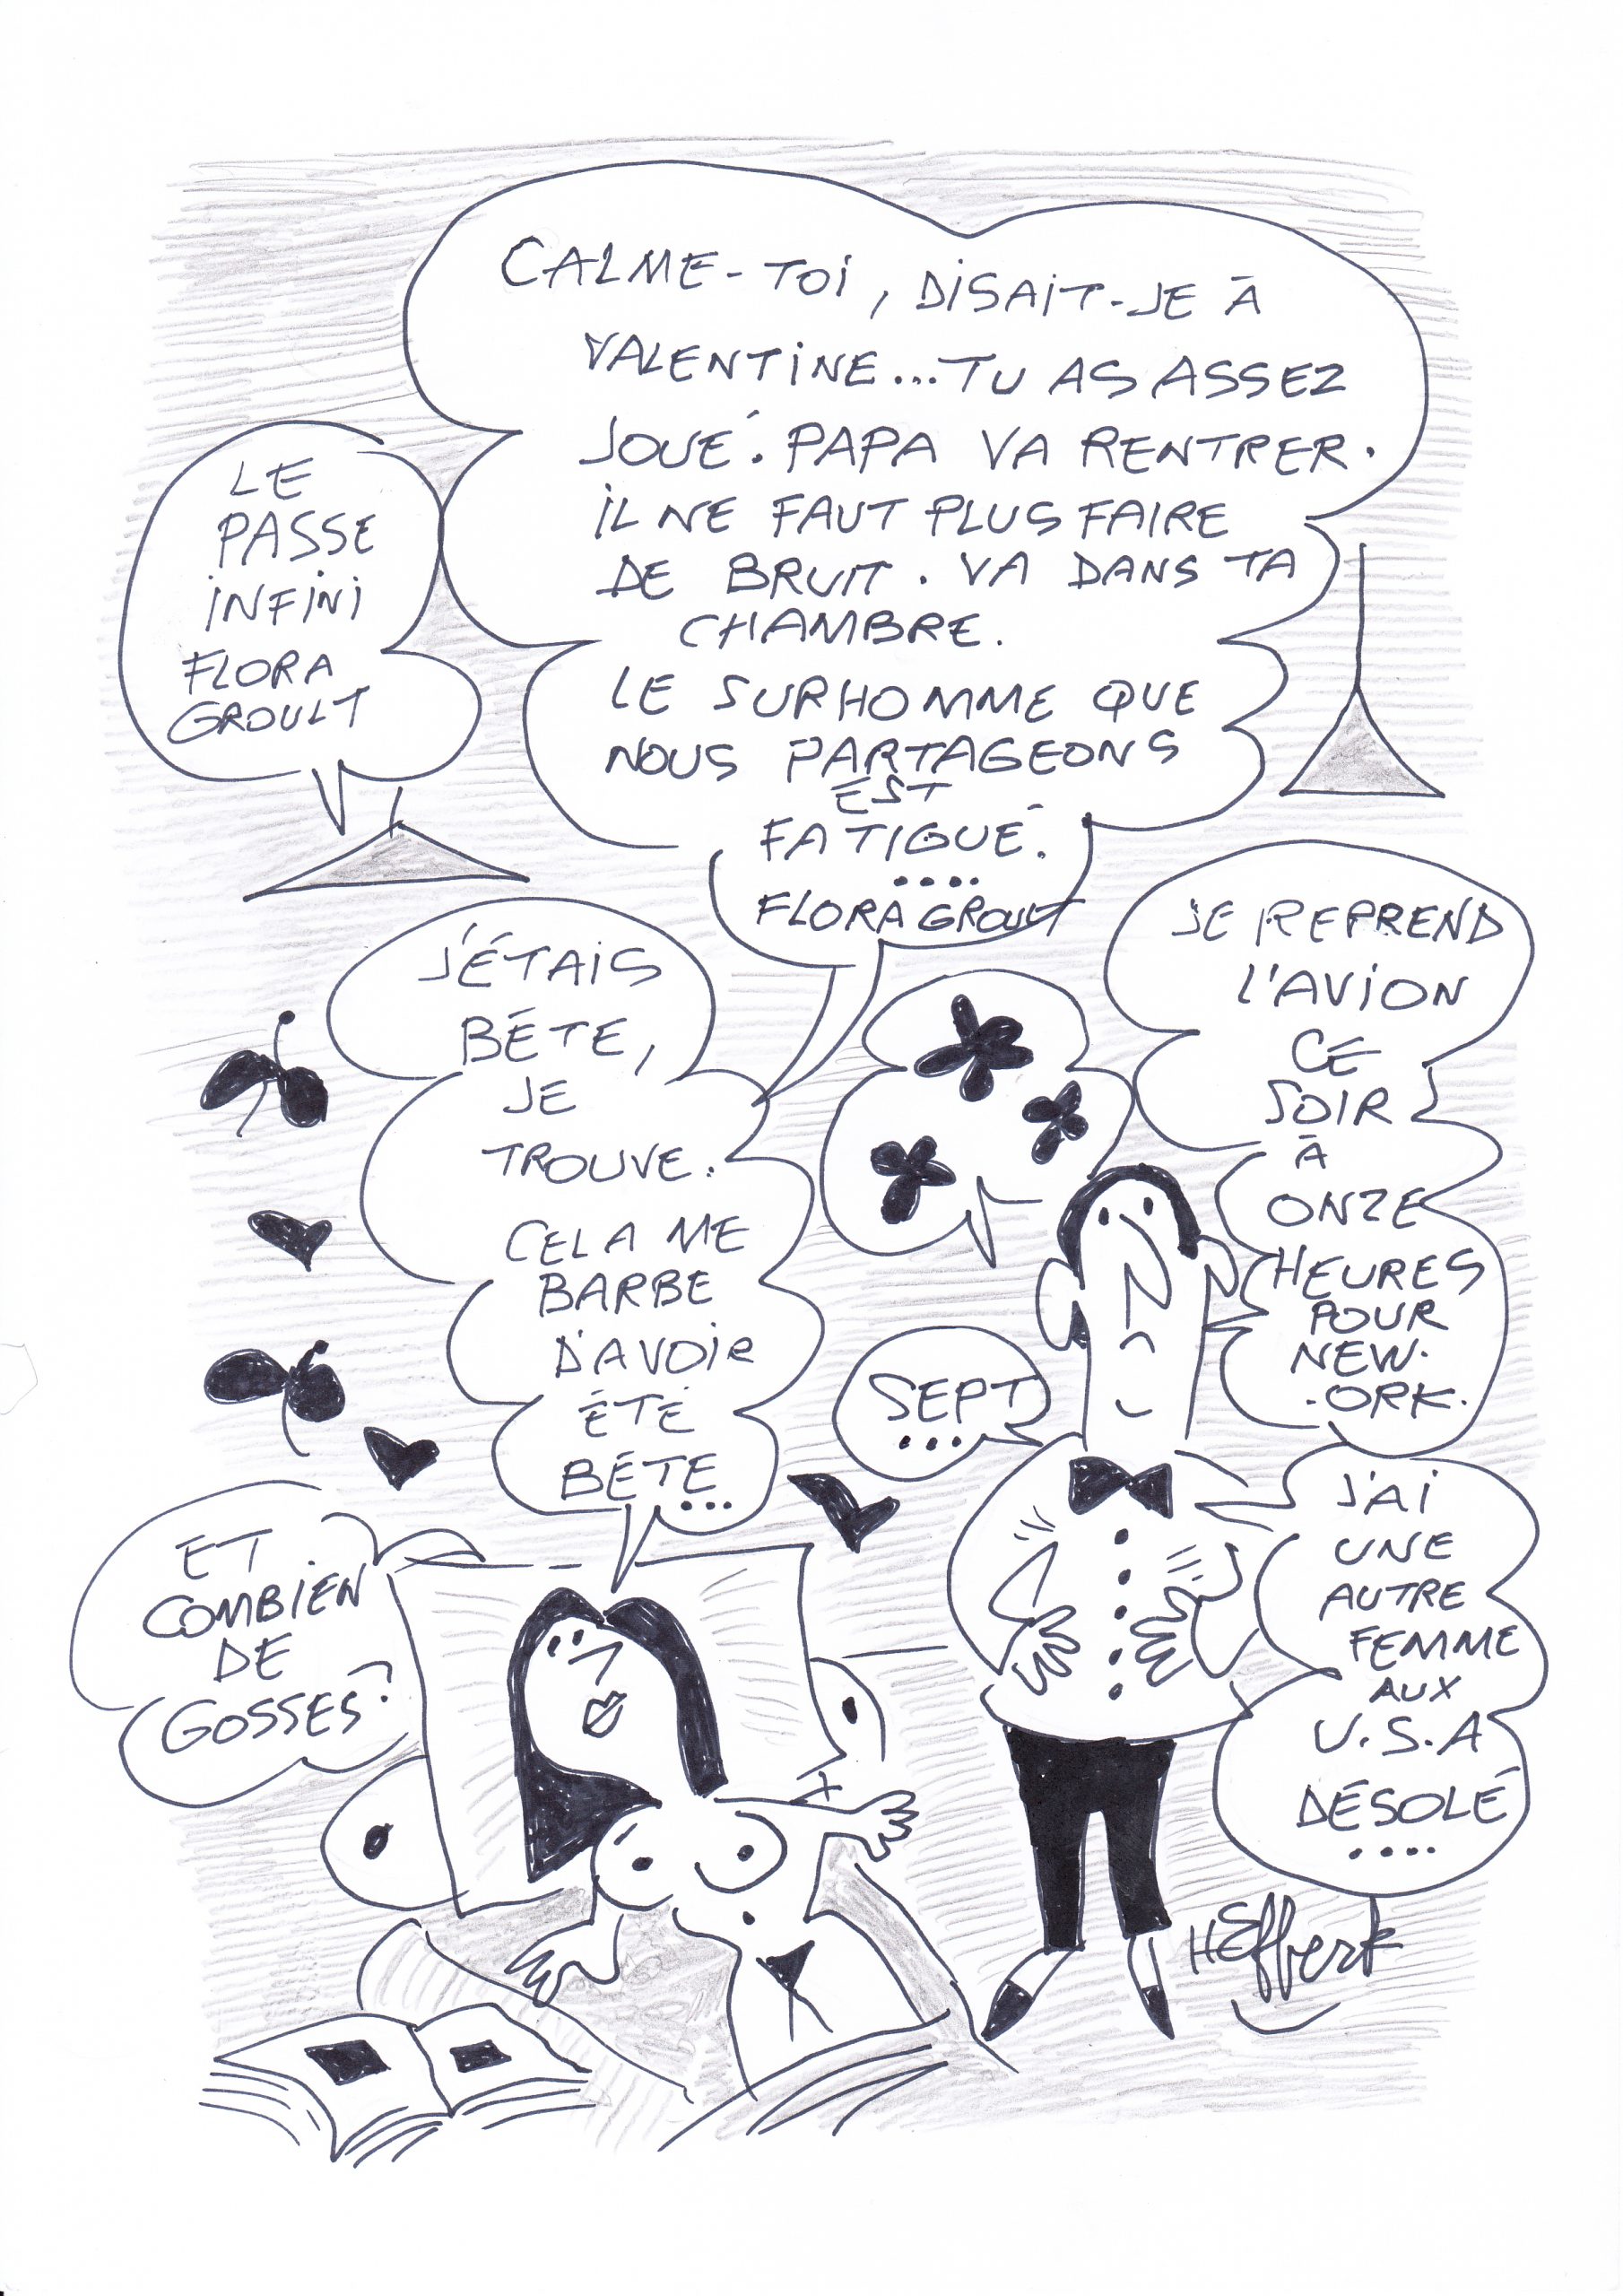 CALME-TOI, DISAIT-JE À
VALENTINE...TU AS ASSEZ
JOUÉ. PAPA VA RENTRER.
IL NE FAUT PLUS FAIRE
DE BRUIT. VA DANS TA
CHAMBRE.
LE SURHOMME QUE
NOUS PARTAGEONS
EST
FATIGUÉ.
....
FLORA GROULT
LE
PASSE
INFINI
FLORA
GROULT
J'ÉTAIS
BÉTE,
JE
TROUVE.
CELA ME
BARBE
D'AVOIR
ÉTÉ
BÉTE...
JE REPREND
L'AVION
CE
SOIR
À
ONZE
HEURES
POUR
NEW-
-ORK.
J'AI
UNE
AUTRE
FEMME
AUX
U.S.A
DÉSOLÉ
....
ET
COMBIEN
DE
GOSSES?
SEPT
...
HEfferk